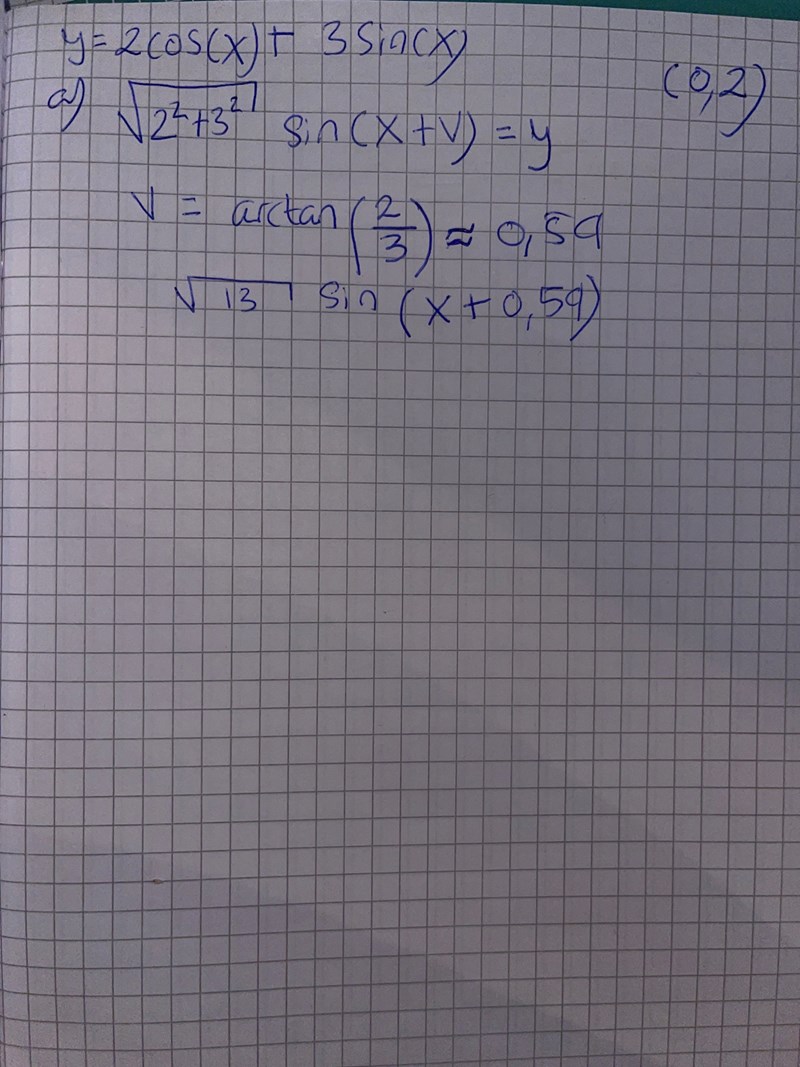 y = 2cos(x) + 3sin(x)
(0,2)
a) √(2²+3²) sin(x+v) = y
v = arctan(2/3) ≈ 0,59
√13 sin(x+0,59)